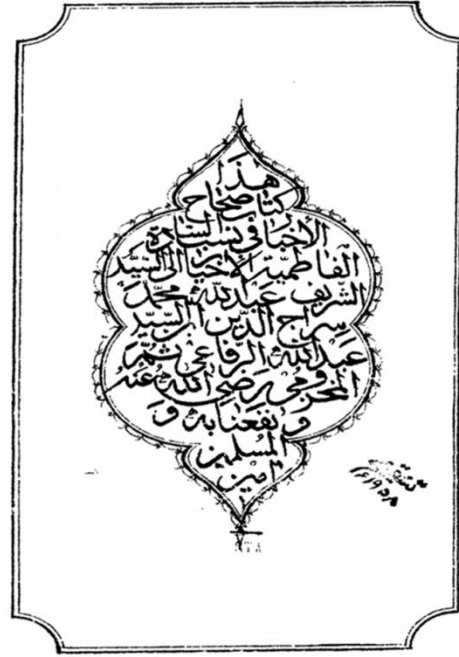 هذا
كتاب صحاح
الأخبار في نسب السادة
الفاطمية الأخيار إلى السيد
الشريف عبد الله محمد
سراج الدين ابن السيد
عبد الله الرفاعي ثم
المخزومي رضي الله عنه
ونفعنا به و
المسلمين
آمين